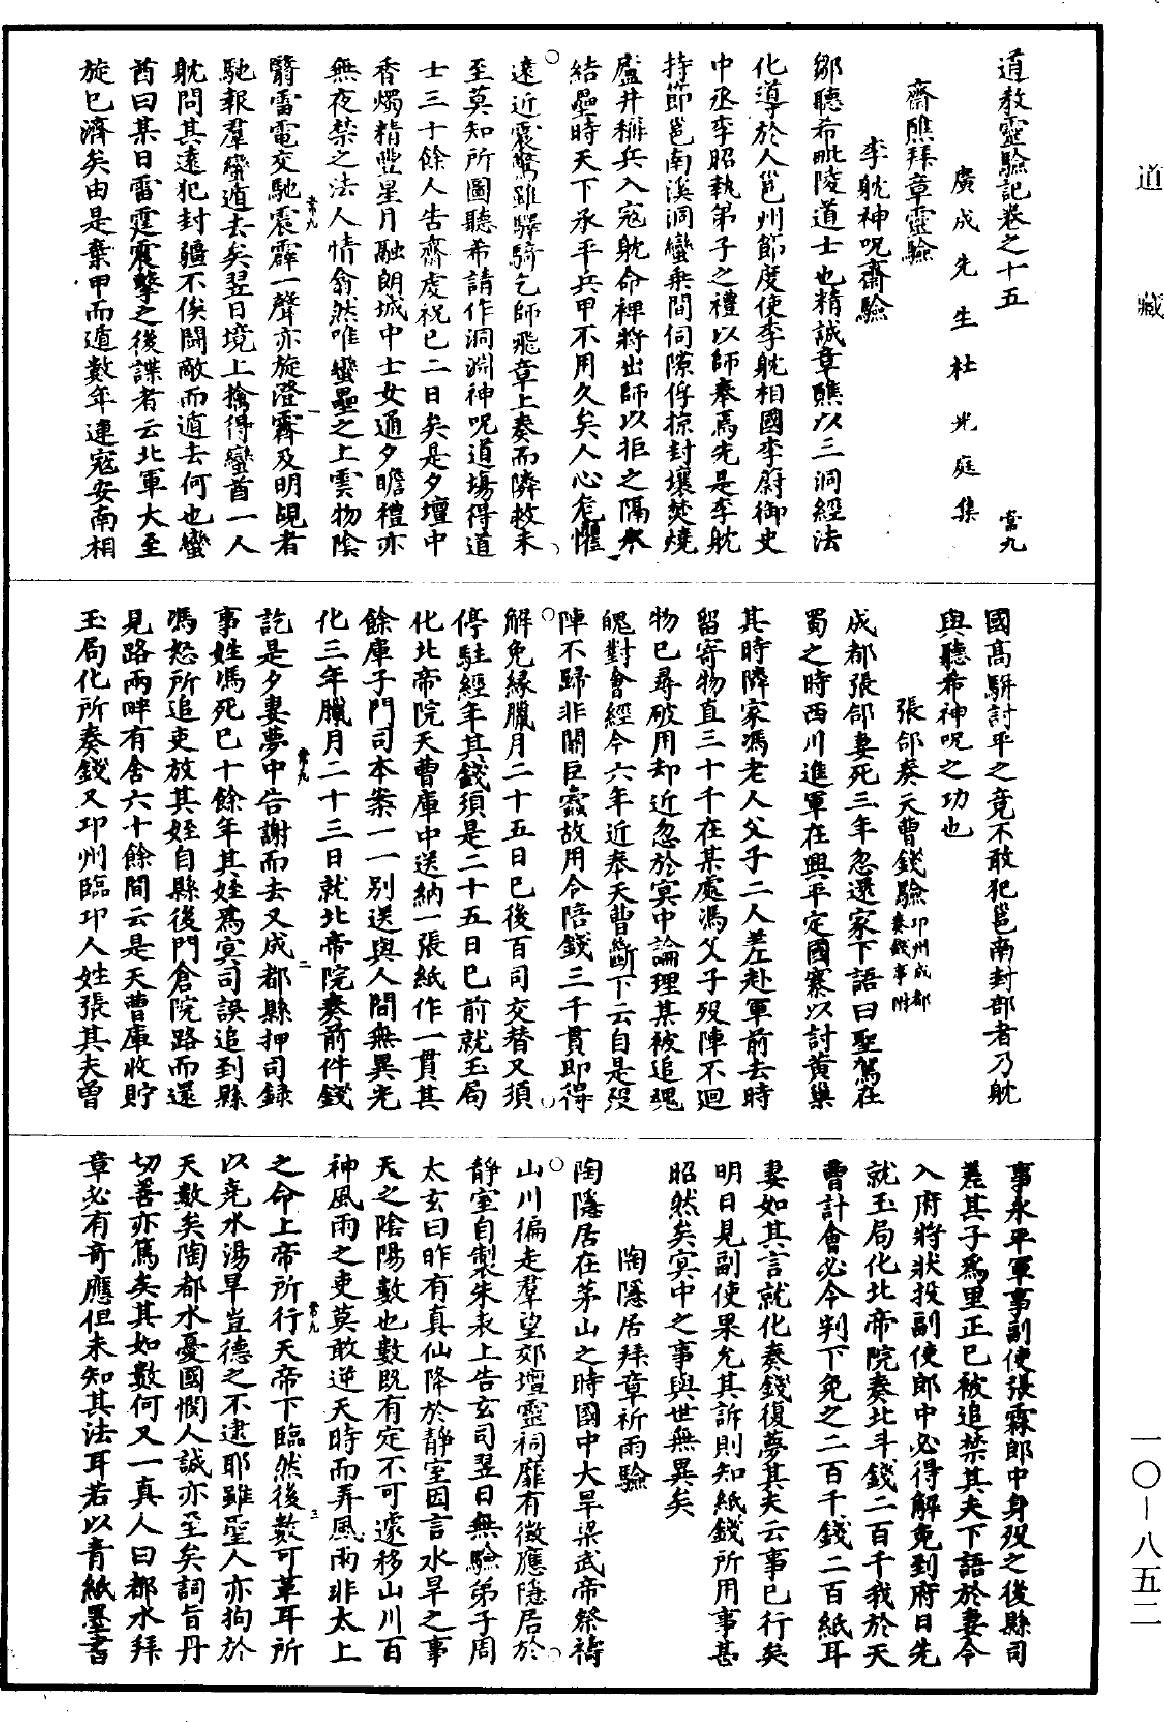 道藏
一〇—八五二
道教靈驗記卷之十五　常九
廣成先生杜光庭集
齋醮拜章靈驗
李躭神呪齋驗
鄒聽希毗陵道士也精誠章醮以三洞經法
化導於人邕州節度使李躭相國李蔚御史
中丞李昭執弟子之禮以師奉焉先是李躭
持節邕南溪洞蠻乘間伺隙俘掠封壤焚燒
廬井稱兵入寇躭命裨將出師以拒之隔水
結壘時天下承平兵甲不用久矣人心危懼
遠近震驚雖驛騎乞師飛章上奏而隣救未
至莫知所圖聽希請作洞淵神呪道場得道
士三十餘人告齋虔祝已二日矣是夕壇中
香燭精豐星月融朗城中士女通夕瞻禮亦
無夜禁之法人情翕然唯蠻壘之上雲物陰
翳雷電交馳震霹一聲亦旋澄霽及明覘者
常九　一
馳報羣蠻遁去矣翌日境上擒得蠻酋一人
躭問其遠犯封疆不俟鬪敵而遁去何也蠻
酋曰某日雷霆震擊之後諜者云北軍大至
旋已濟矣由是棄甲而遁數年連寇安南相
國高駢討平之竟不敢犯邕南封部者乃躭
與聽希神呪之功也
張郃奏天曹錢驗卭州成都奏錢事附
成都張郃妻死三年忽還家下語曰聖駕在
蜀之時西川進軍在興平定國寨以討黃巢
其時隣家馮老人父子二人差赴軍前去時
留寄物直三十千在某處馮父子歿陣不迴
物已尋破用却近忽於冥中論理某被追魂
魄對會經今六年近奉天曹斷下云自是歿
陣不歸非關巨蠹故用令陪錢三千貫即得
解免緣臘月二十五日已後百司交替又須
停駐經年其錢須是二十五日已前就玉局
化北帝院天曹庫中送納一張紙作一貫其
餘庫子門司本案一一別送與人間無異光
化三年臘月二十三日就北帝院奏前件錢
常九　二
訖是夕妻夢中告謝而去又成都縣押司録
事姓馮死已十餘年其姪爲冥司誤追到縣
馮怒所追吏放其姪自縣後門倉院路而還
見路兩畔有舍六十餘間云是天曹庫收貯
玉局化所奏錢又卭州臨卭人姓張其夫曾
事永平軍事副使張霖郎中身歿之後縣司
差其子爲里正已被追禁其夫下語於妻令
入府將狀投副使郎中必得解免到府日先
就玉局化北帝院奏北斗錢二百千我於天
曹計會必令判下免之二百千錢二百紙耳
妻如其言就化奏錢復夢其夫云事已行矣
明日見副使果允其訴則知紙錢所用事甚
昭然矣冥中之事與世無異矣
陶隱居拜章祈雨驗
陶隱居在茅山之時國中大旱梁武帝祭禱
山川徧走羣望郊壇靈祠靡有徵應隱居於
靜室自製朱表上告玄司翌日無驗弟子周
太玄曰昨有真仙降於靜室因言水旱之事
天之陰陽數也數既有定不可遽移山川百
神風雨之吏莫敢逆天時而弄風雨非太上
常九　三
之命上帝所行天帝下臨然後數可革耳所
以堯水湯旱豈德之不逮耶雖聖人亦拘於
天數矣陶都水憂國憫人誠亦至矣詞旨丹
切善亦篤矣其如數何又一真人曰都水拜
章必有奇應但未知其法耳若以青紙墨書